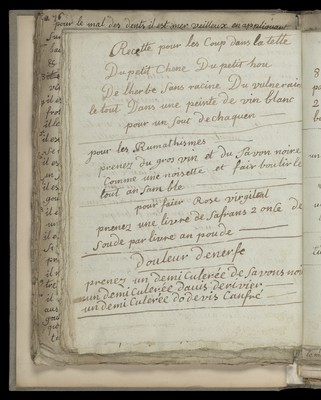 pour le mal des dents il est mer veilleux en appliquant
Recette pour les Coup dans la tette
Du petit Chene Du petit hou
De lherbe Sans racine Du vulnerain
le tout Dans une peinte de vin blanc
pour un Sout de chaquen
pour les Rumathismes
prenez du gros vin et du Savon noire
Comme une noisette et fair boulir le
tout an Sam ble
pour faier Rose virgileal
prenez une livre de Safrans 2 onse de
Soude par livre an poude
Douleur denerfe
prenez un demi Culerée de Savons noi
un demi Culerée dauis derivier
un demi Culerée do devis Canfré